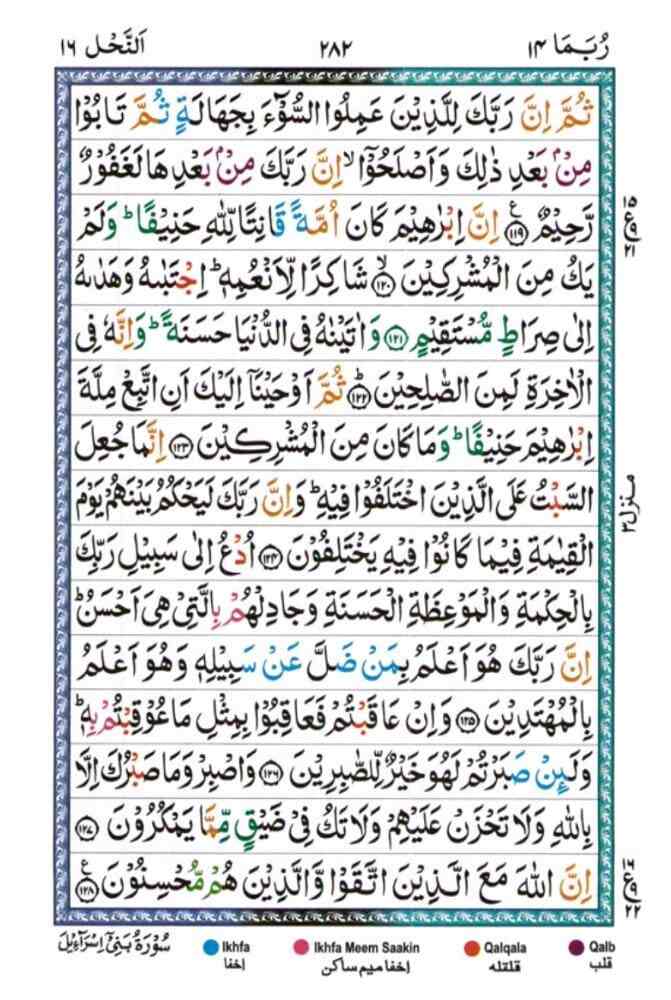 رُبَمَا ١٤
٢٨٢
اَلنَّحْل ١٦
ثُمَّ اِنَّ رَبَّكَ لِلَّذِيْنَ عَمِلُوا السُّوْٓءَ بِجَهَالَةٍ ثُمَّ تَابُوْا
مِنْۢ بَعْدِ ذٰلِكَ وَاَصْلَحُوْٓا ۙ اِنَّ رَبَّكَ مِنْۢ بَعْدِهَا لَغَفُوْرٌ
رَّحِيْمٌ ﴿١١٩﴾ ع اِنَّ اِبْرٰهِيْمَ كَانَ اُمَّةً قَانِتًا لِّلّٰهِ حَنِيْفًا ؕ وَلَمْ
يَكُ مِنَ الْمُشْرِكِيْنَ ﴿١٢٠﴾ ۙ شَاكِرًا لِّاَنْعُمِهٖ ؕ اِجْتَبٰىهُ وَهَدٰىهُ
اِلٰى صِرَاطٍ مُّسْتَقِيْمٍ ﴿١٢١﴾ وَاٰتَيْنٰهُ فِى الدُّنْيَا حَسَنَةً ؕ وَاِنَّهٗ فِى
الْاٰخِرَةِ لَمِنَ الصّٰلِحِيْنَ ﴿١٢٢﴾ ؕ ثُمَّ اَوْحَيْنَاۤ اِلَيْكَ اَنِ اتَّبِعْ مِلَّةَ
اِبْرٰهِيْمَ حَنِيْفًا ؕ وَمَا كَانَ مِنَ الْمُشْرِكِيْنَ ﴿١٢٣﴾ اِنَّمَا جُعِلَ
السَّبْتُ عَلَى الَّذِيْنَ اخْتَلَفُوْا فِيْهِ ؕ وَاِنَّ رَبَّكَ لَيَحْكُمُ بَيْنَهُمْ يَوْمَ
الْقِيٰمَةِ فِيْمَا كَانُوْا فِيْهِ يَخْتَلِفُوْنَ ﴿١٢٤﴾ اُدْعُ اِلٰى سَبِيْلِ رَبِّكَ
بِالْحِكْمَةِ وَالْمَوْعِظَةِ الْحَسَنَةِ وَجَادِلْهُمْ بِالَّتِىْ هِىَ اَحْسَنُ ؕ
اِنَّ رَبَّكَ هُوَ اَعْلَمُ بِمَنْ ضَلَّ عَنْ سَبِيْلِهٖ وَهُوَ اَعْلَمُ
بِالْمُهْتَدِيْنَ ﴿١٢٥﴾ وَاِنْ عَاقَبْتُمْ فَعَاقِبُوْا بِمِثْلِ مَا عُوْقِبْتُمْ بِهٖ ؕ
وَلَئِنْ صَبَرْتُمْ لَهُوَ خَيْرٌ لِّلصّٰبِرِيْنَ ﴿١٢٦﴾ وَاصْبِرْ وَمَا صَبْرُكَ اِلَّا
بِاللّٰهِ وَلَا تَحْزَنْ عَلَيْهِمْ وَلَا تَكُ فِىْ ضَيْقٍ مِّمَّا يَمْكُرُوْنَ ﴿١٢٧﴾
اِنَّ اللّٰهَ مَعَ الَّذِيْنَ اتَّقَوْا وَّالَّذِيْنَ هُمْ مُّحْسِنُوْنَ ﴿١٢٨﴾ ع
١٥
ع ٩
٢١
منزل ٣
١٦
ع ٩
٢٢
سُوْرَةُ بَنِىْٓ اِسْرَآءِيْلَ
Ikhfa
اخفا
Ikhfa Meem Saakin
اخفا ميم ساكن
Qalqala
قلقله
Qalb
قلب